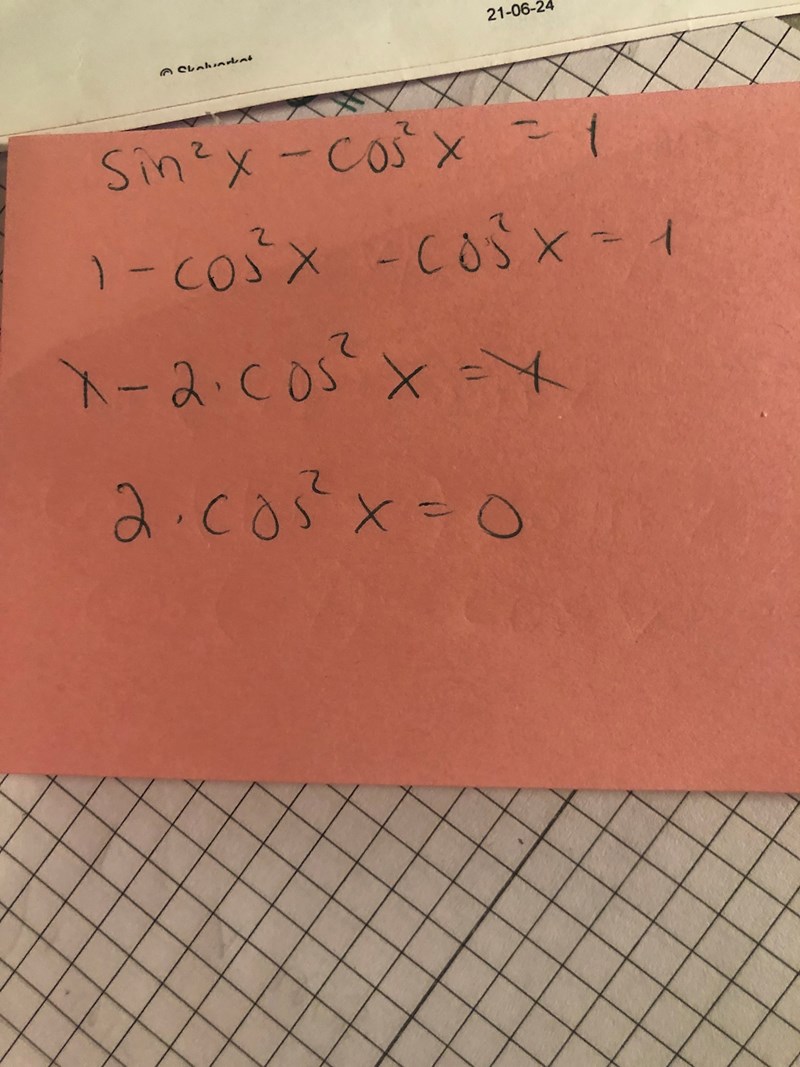 21-06-24
© Skolverket
sin²x - cos²x = 1
1 - cos²x - cos²x = 1
1 - 2·cos²x = 1
2·cos²x = 0